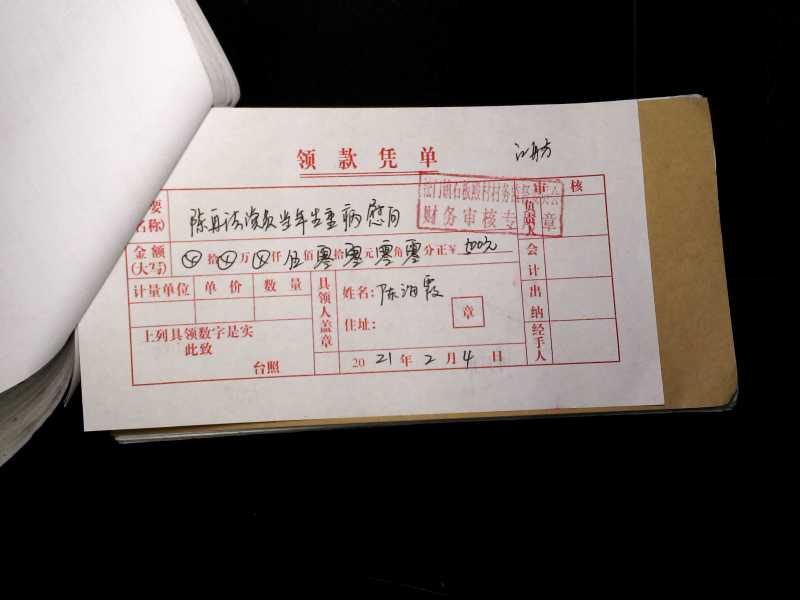 领款凭单
审核
要
名称)
当年生重病慰问
村村务
财务审核专
章
负责人
金额
(大写)
拾 万 仟 伍 佰 零 拾 零 元 零 角 零 分正¥ 500元
会计
计量单位 单价 数量
具领人盖章
姓名: 陈
霞
住址:
章
出纳
上列具领数字是实
此致
台照
2021年2月4日
经手人